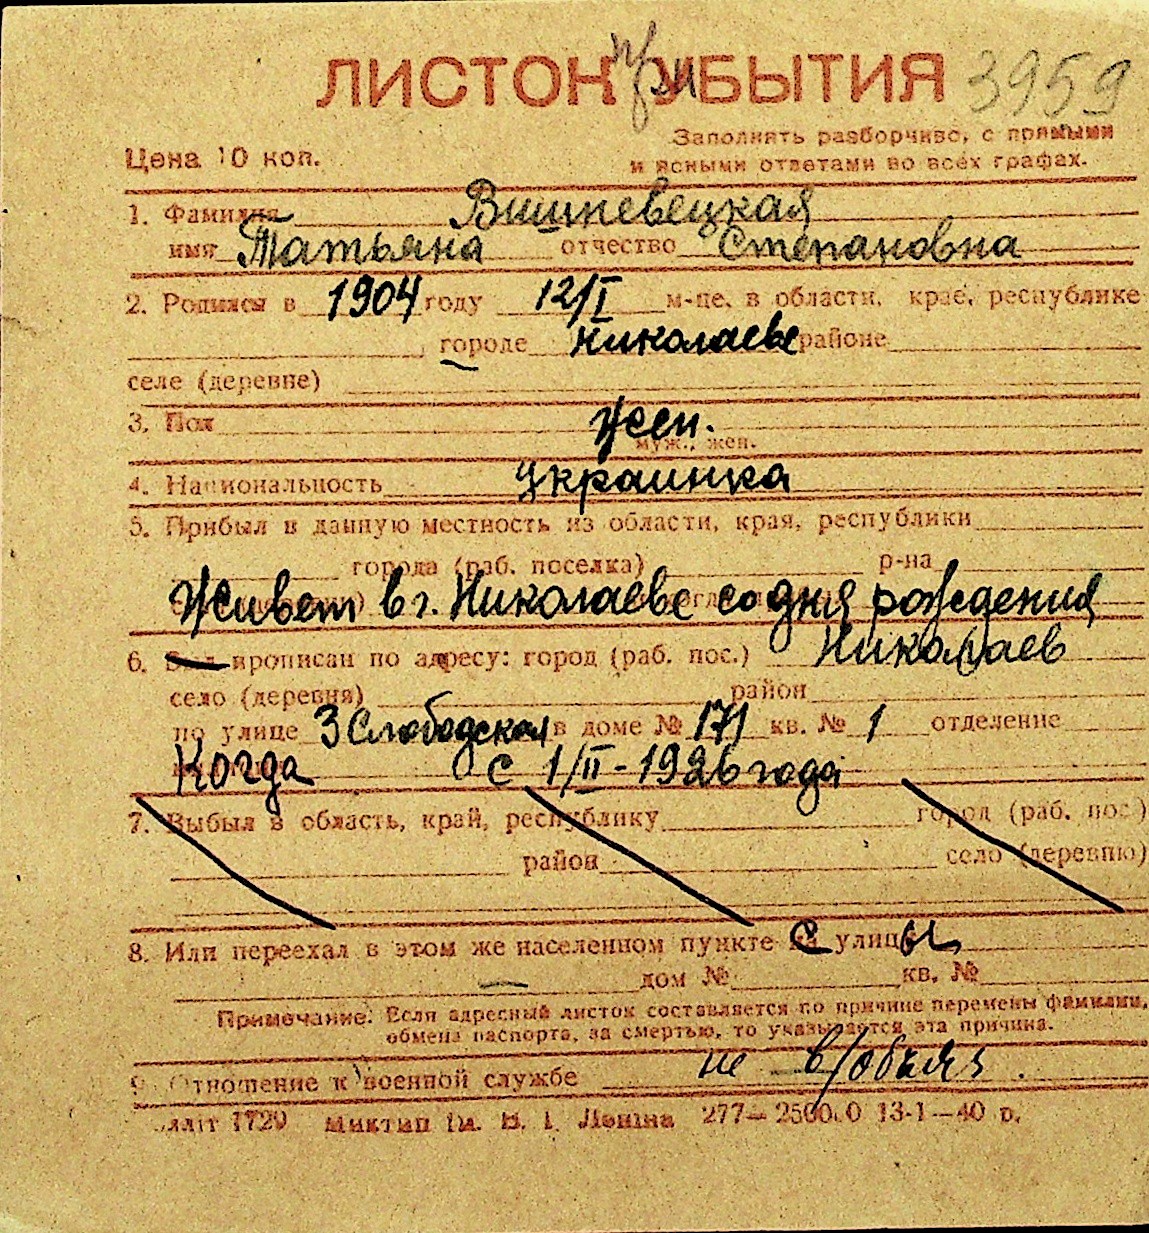 ЛИСТОК УБЫТИЯ 3959
при
Цена 10 коп.
Заполнять разборчиво, с прямыми
и ясными ответами во всех графах.
1. Фамилия Вишневецкая
имя Татьяна отчество Степановна
2. Родился в 1904 году 12/I м-це, в области, крае, республике
городе Николаеве районе
селе (деревне)
3. Пол жен.
муж., жен.
4. Национальность украинка
5. Прибыл в данную местность из области, края, республики
города (раб. поселка) р-на
Живет в г. Николаеве со дня рождения
6. Был прописан по адресу: город (раб. пос.) Николаев
село (деревня) район
по улице 3 Слободская в доме № 171 кв. № 1 отделение
Когда с 1/II - 1926 года
7. Выбыл в область, край, республику город (раб. пос.)
район село (деревню)
8. Или переехал в этом же населенном пункте с улицы
— дом № кв. №
Примечание: Если адресный листок составляется по причине перемены фамилии,
обмена паспорта, за смертью, то указывается эта причина.
9. Отношение к военной службе не в/обяз.
1729 277— 13-1—40 р.